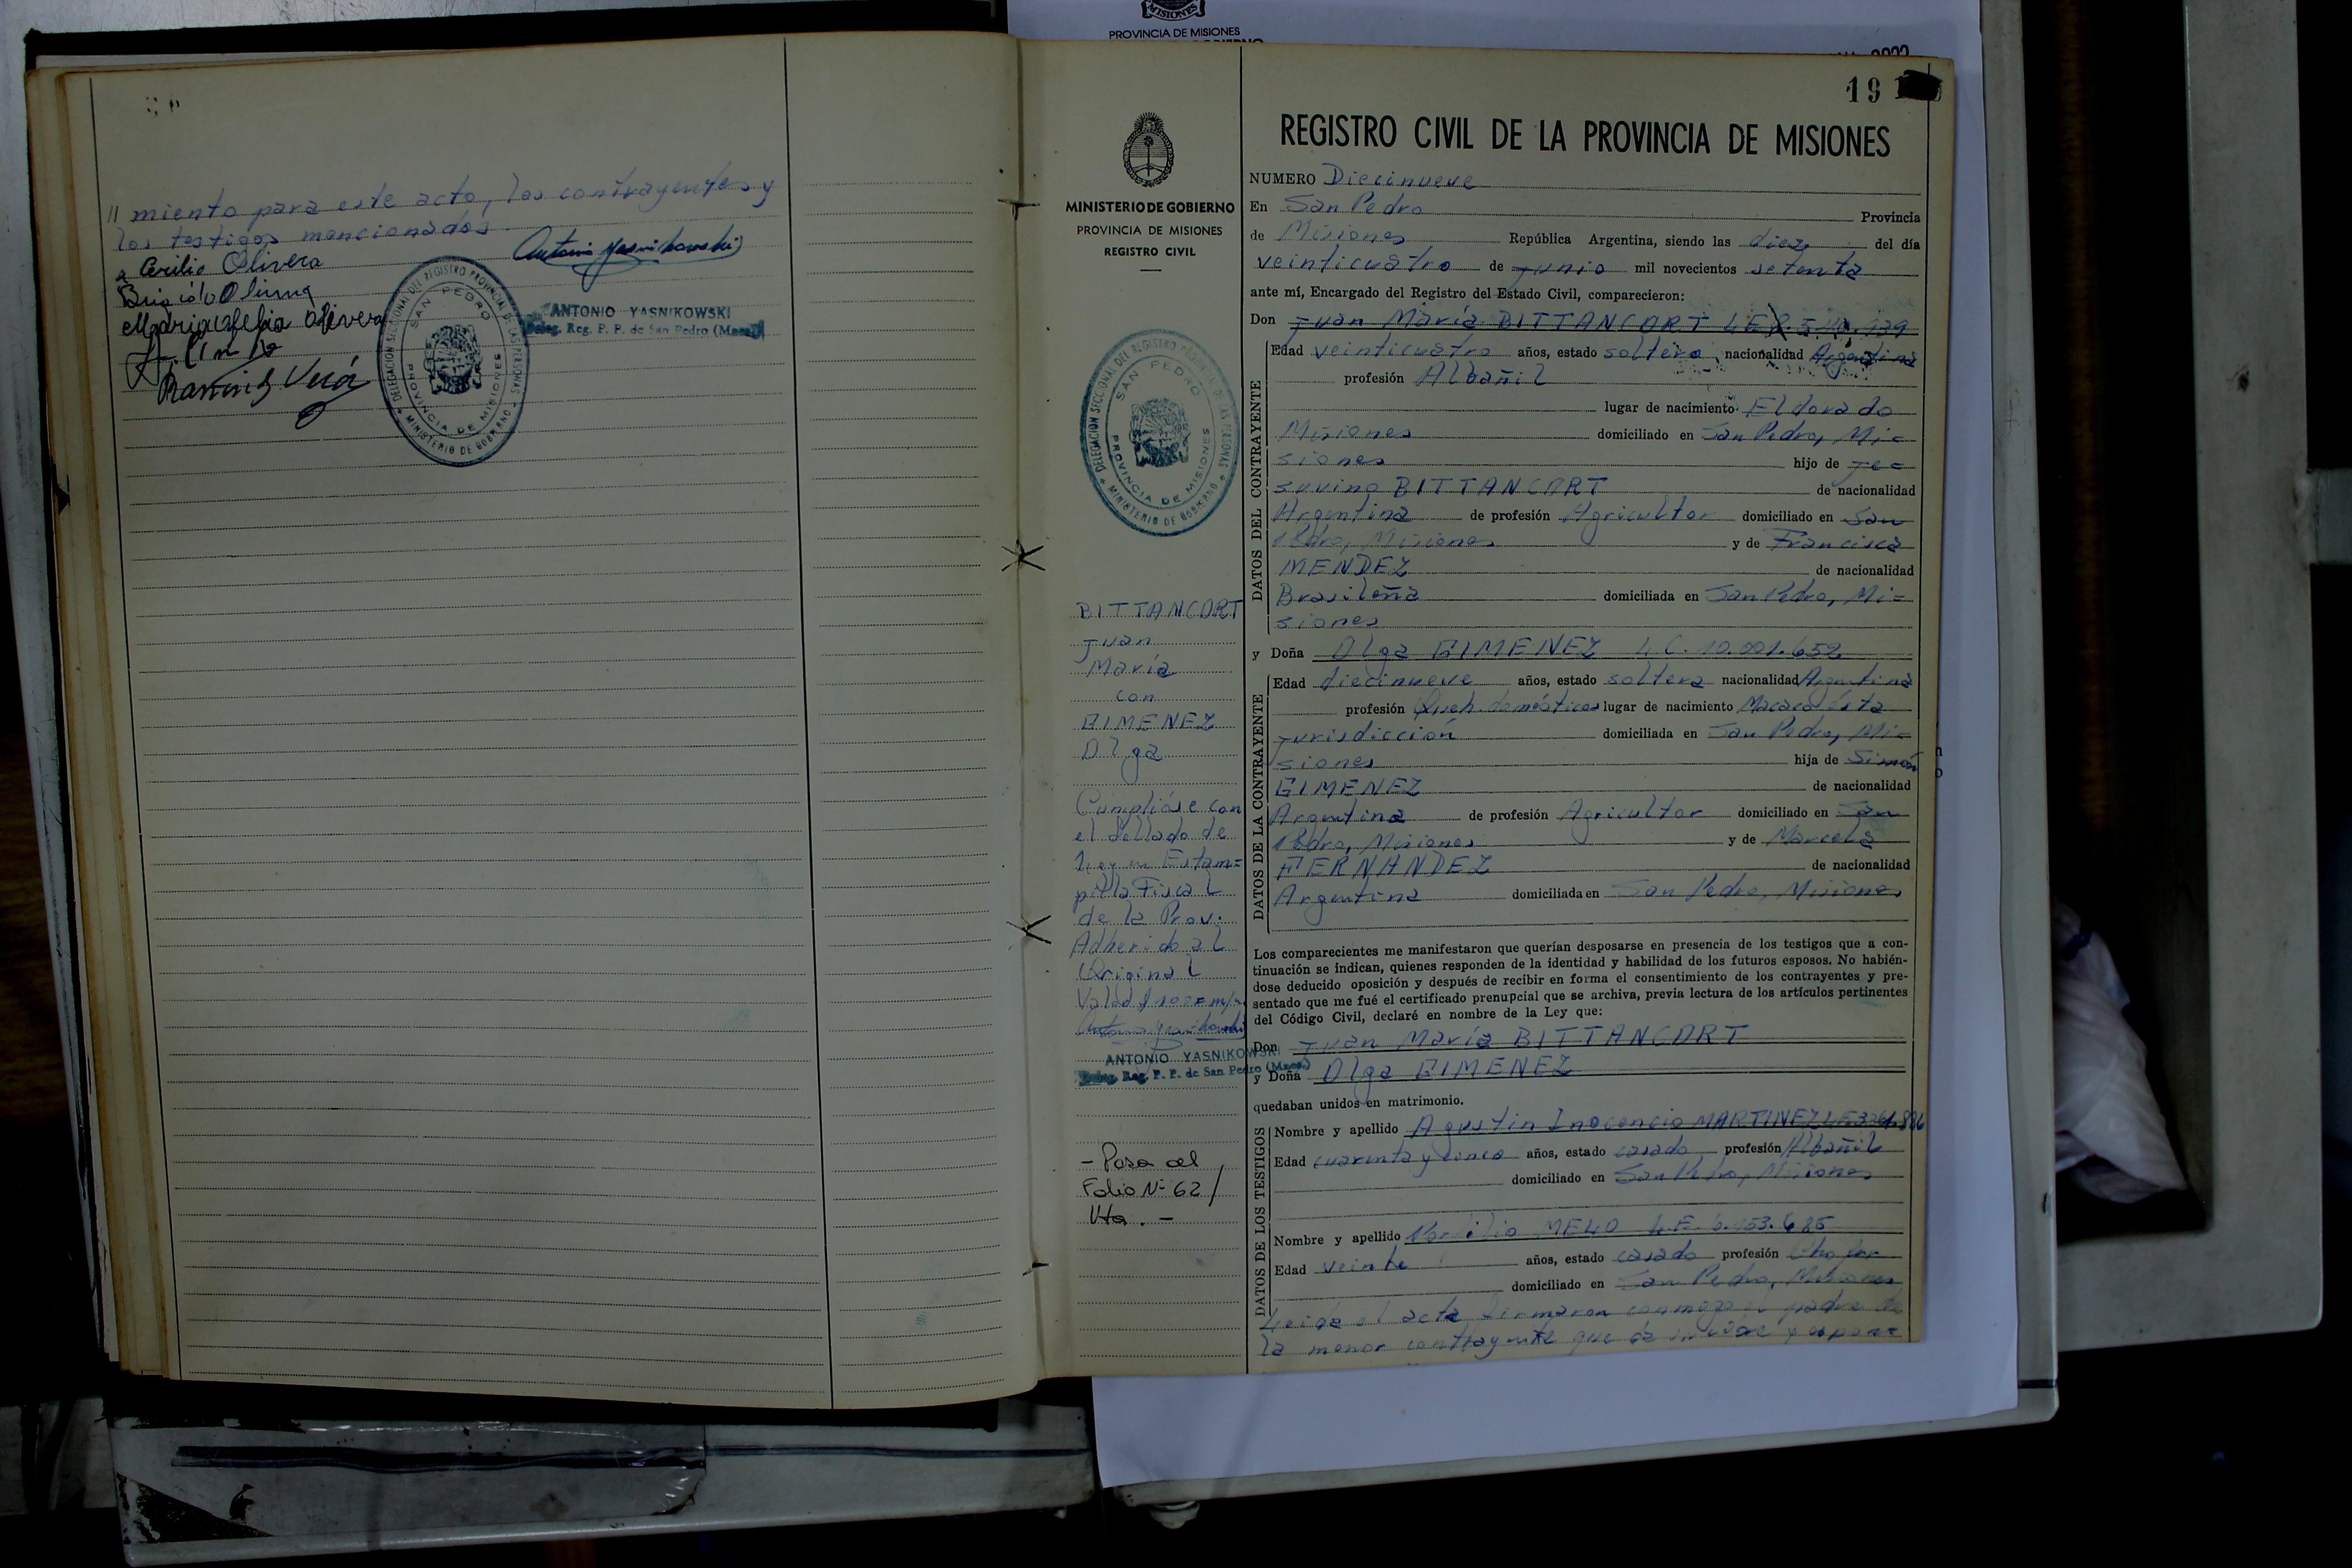 PROVINCIA DE MISIONES
// miento para este acto, los contrayentes y
los testigos mencionados.
Cirilio Olivera
Antonio Yasnikowski
ANTONIO YASNIKOWSKI
Deleg. Reg. P. P. de San Pedro (Mnes.)
DELEGACION SECCIONAL DEL REGISTRO PROVINCIAL DE LAS PERSONAS
SAN PEDRO
PROVINCIA DE MISIONES
MINISTERIO DE GOBIERNO
Ramón Vera
MINISTERIO DE GOBIERNO
PROVINCIA DE MISIONES
REGISTRO CIVIL
DELEGACION SECCIONAL DEL REGISTRO PROVINCIAL DE LAS PERSONAS
SAN PEDRO
PROVINCIA DE MISIONES
MINISTERIO DE GOBIERNO
BITTANCORT
Juan
María
con
GIMENEZ
Olga
Cumplióse con
el sellado de
Ley en Estam=
pilla Fiscal
de la Prov.
Adherido al
Original
Antonio Yasnikowski
ANTONIO YASNIKOWSKI
Deleg. Reg. P. P. de San Pedro (Mnes.)
- Pasa al
Folio Nº 62/
Vto. -
19
REGISTRO CIVIL DE LA PROVINCIA DE MISIONES
NUMERO Diecinueve
En San Pedro Provincia
de Misiones República Argentina, siendo las diez del día
veinticuatro de Junio mil novecientos setenta
ante mí, Encargado del Registro del Estado Civil, comparecieron:
Don Juan María BITTANCORT
DATOS DEL CONTRAYENTE
Edad veinticuatro años, estado soltero nacionalidad Argentina
profesión Albañil
lugar de nacimiento Eldorado
Misiones domiciliado en San Pedro, Mi=
siones hijo de Je=
suvino BITTANCORT de nacionalidad
Argentina de profesión Agricultor domiciliado en San
Pedro, Misiones y de Francisca
MENDEZ de nacionalidad
Brasileña domiciliada en San Pedro, Mi=
siones
y Doña Olga GIMENEZ L C. 10.001.652
DATOS DE LA CONTRAYENTE
Edad diecinueve años, estado soltera nacionalidad Argentina
profesión Queh. domésticos lugar de nacimiento
jurisdicción domiciliada en San Pedro, Mi=
siones hija de Simón
GIMENEZ de nacionalidad
Argentina de profesión Agricultor domiciliado en San
Pedro, Misiones y de Marcela
FERNANDEZ de nacionalidad
Argentina domiciliada en San Pedro, Misiones
Los comparecientes me manifestaron que querían desposarse en presencia de los testigos que a con-
tinuación se indican, quienes responden de la identidad y habilidad de los futuros esposos. No habién-
dose deducido oposición y después de recibir en forma el consentimiento de los contrayentes y pre-
sentado que me fué el certificado prenupcial que se archiva, previa lectura de los artículos pertinentes
del Código Civil, declaré en nombre de la Ley que:
Don Juan María BITTANCORT
y Doña Olga GIMENEZ
quedaban unidos en matrimonio.
DATOS DE LOS TESTIGOS
Nombre y apellido Agustin Inocencio MARTINEZ
Edad cuarenta y cinco años, estado casado profesión Albañil
domiciliado en San Pedro, Misiones
Nombre y apellido MELO
Edad veinte años, estado casado profesión Chofer
domiciliado en San Pedro, Misiones
Leida el acta firmaron conmigo el padre de
la menor contrayente que